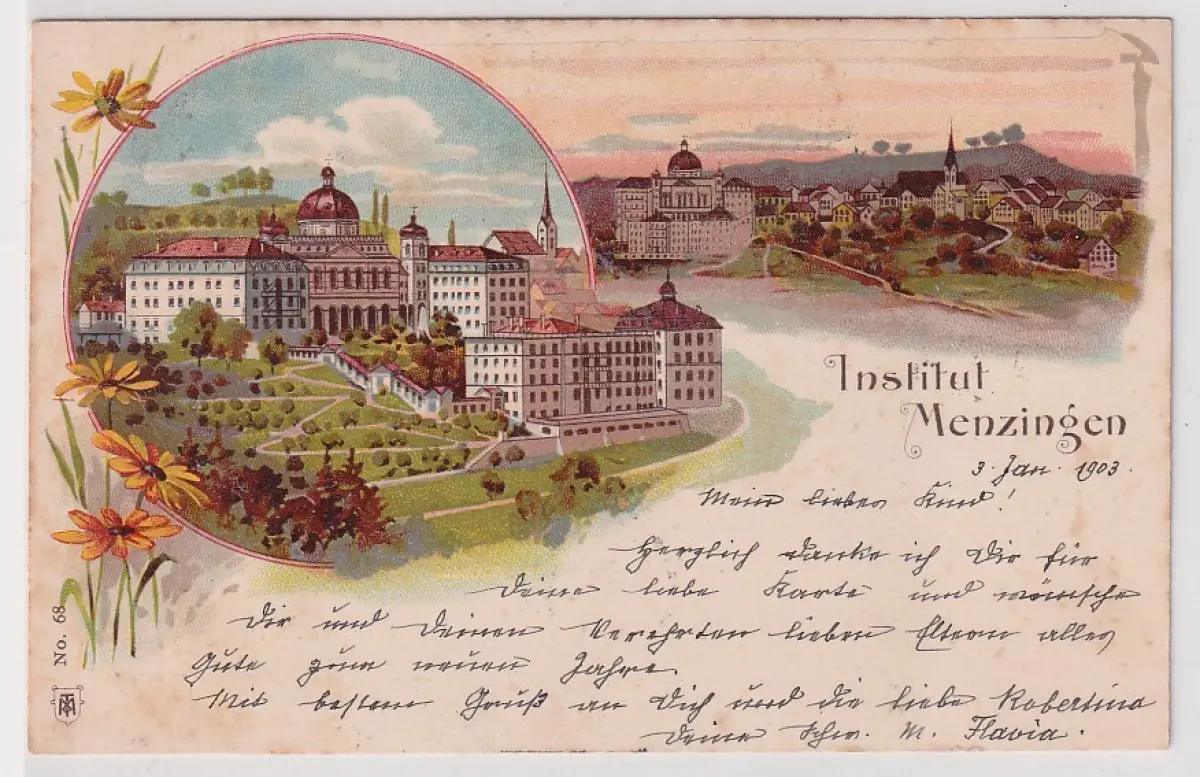 Institut
Menzingen
3. Jan. 1903.
Mein liebes Kind!
Herzlich danke ich Dir für
Deine liebe Karte und wünsche
Dir und Deinen Verehrten lieben Eltern alles
Gute zum neuen Jahre.
Mit bestem Gruß an Dich und die liebe Robertina
Deine Schw. M. Flavia.
No. 68